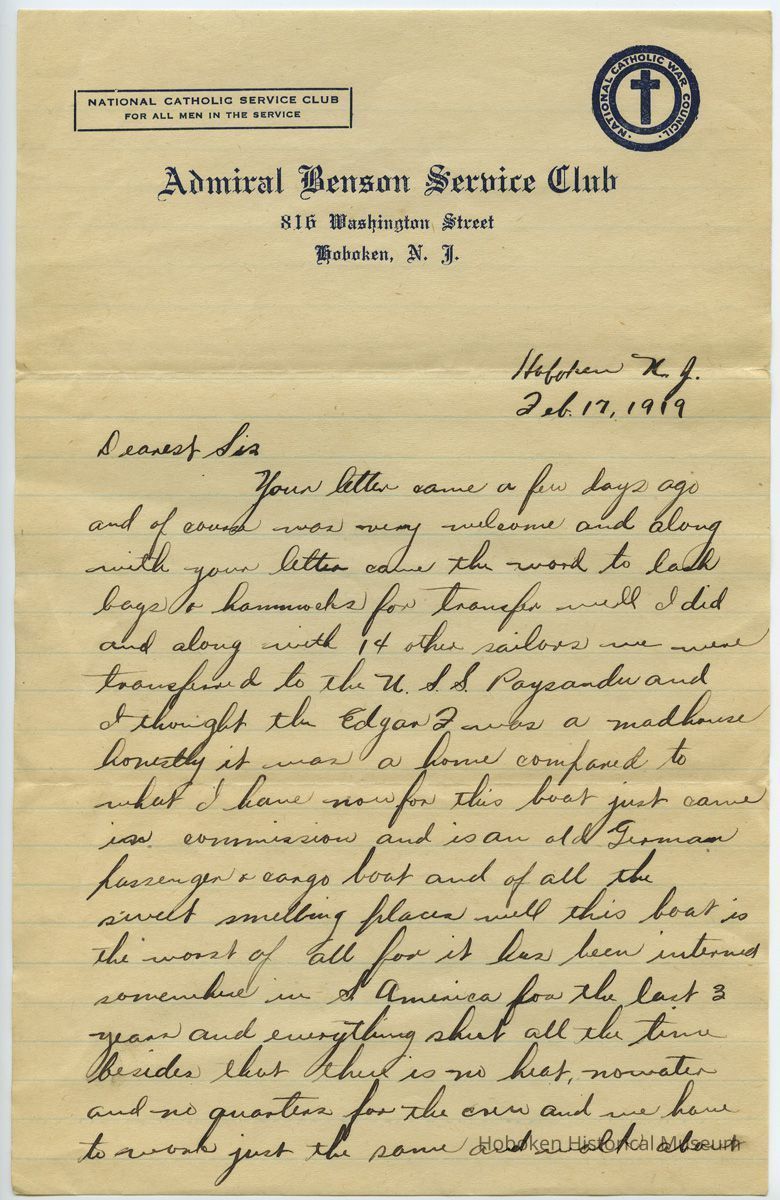 NATIONAL CATHOLIC SERVICE CLUB
FOR ALL MEN IN THE SERVICE
NATIONAL CATHOLIC WAR COUNCIL
Admiral Benson Service Club
816 Washington Street
Hoboken, N. J.
Hoboken N. J.
Feb. 17, 1919
Dearest Sis
Your letter came a few days ago
and of course was very welcome and along
with your letter came the word to lash
bags & hammocks for transfer well I did
and along with 14 other sailors we were
transferred to the U. S. S. Paysandu and
I thought the Edgar F was a madhouse
honestly it was a home compared to
what I have now for this boat just came
in commission and is an old German
passenger & cargo boat and of all the
sweet smelling places well this boat is
the worst of all for it has been interned
somewhere in S America for the last 3
years and everything shut all the time
besides that there is no heat, no water
and no quarters for the crew and we have
to work just the same and walk about
Hoboken Historical Museum